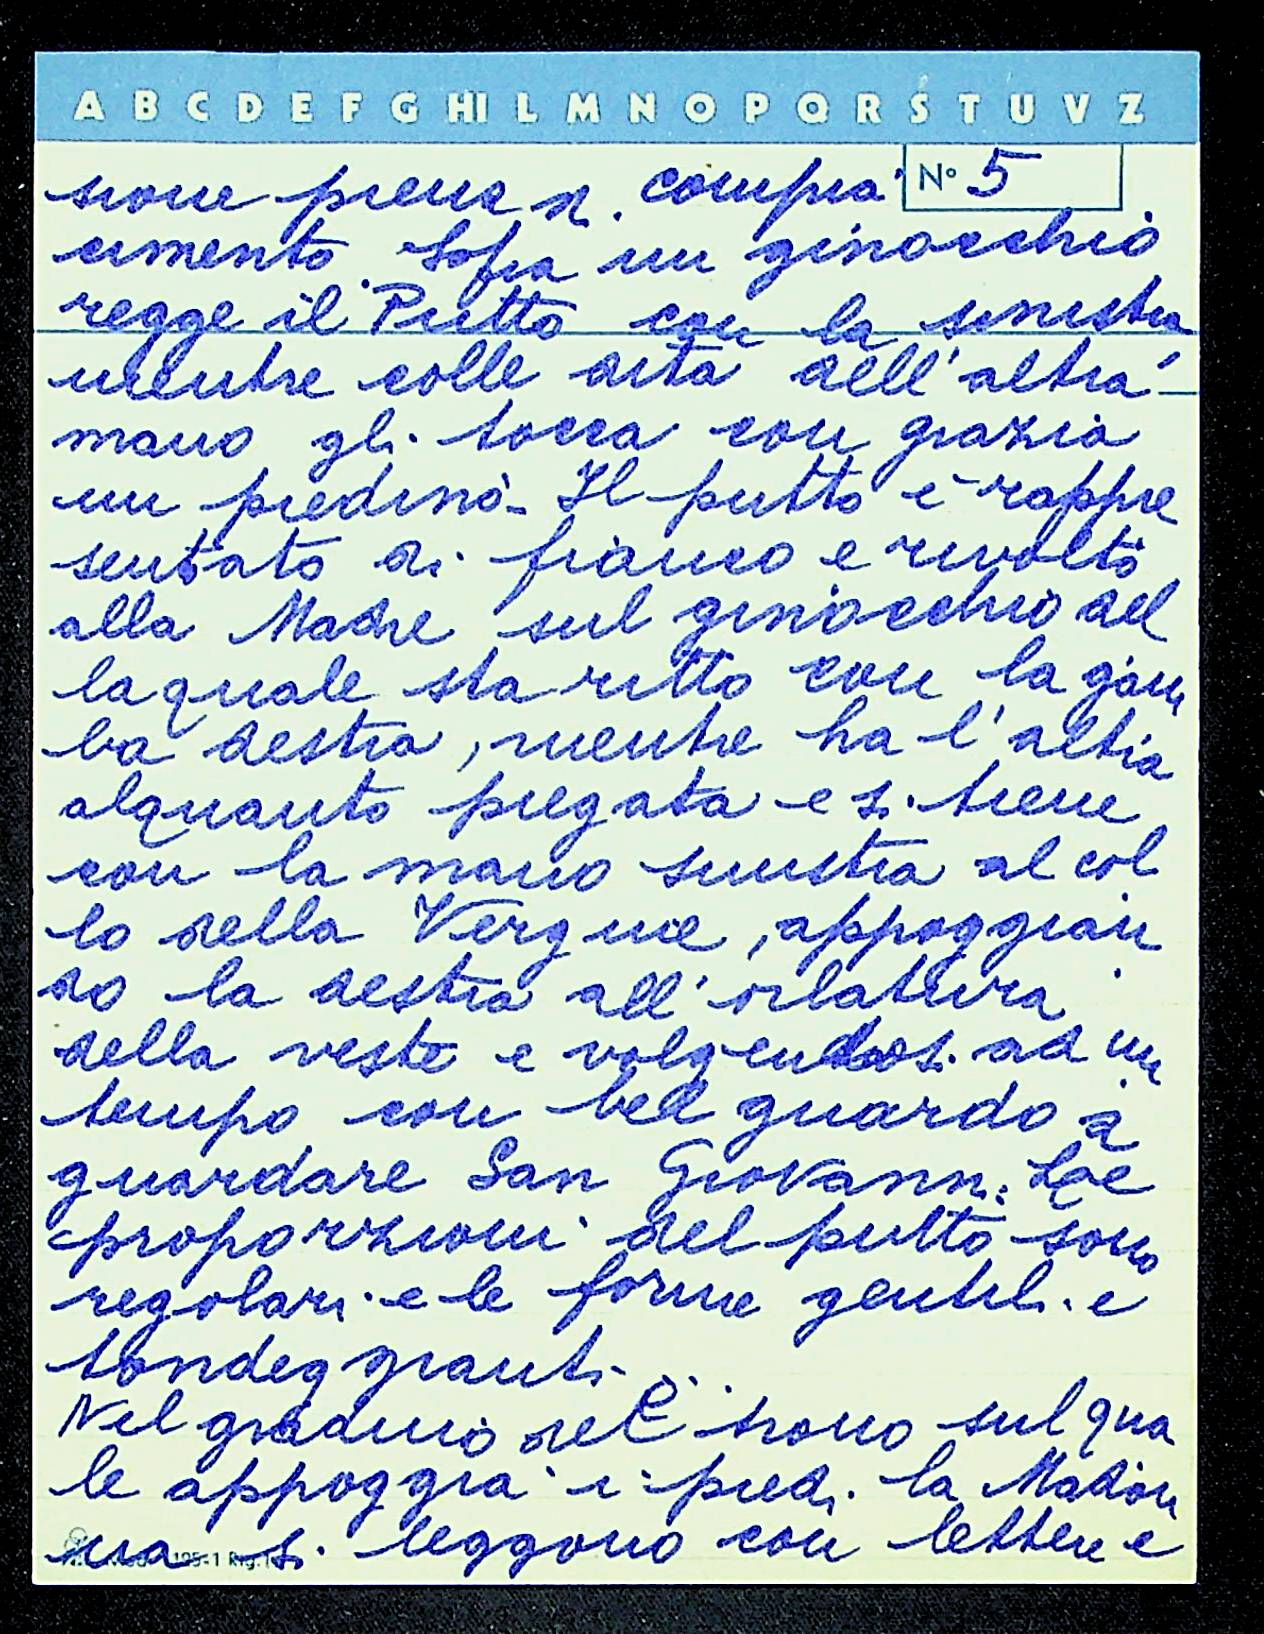 A B C D E F G HI L M N O P Q R S T U V Z
N° 5
sione piena di compia
cimento. Sopra un ginocchio
regge il Putto con la sinistra
mentre colle dita dell'altra
mano gli tocca con grazia
un piedino - Il putto è rappre
sentato di fianco e rivolto
alla Madre sul ginocchio del
la quale sta ritto con la gam
ba destra, mentre ha l'altra
alquanto piegata e si tiene
con la mano sinistra al col
lo della Vergine, appoggian
do la destra all'orlatura
della veste e volgendosi ad un
tempo con bel guardo a
guardare San Giovanni. Le
proporzioni del putto sono
regolari e le forme gentili e
tondeggianti.
Nel gradino del trono sul qua
le appoggia i piedi la Madon
na si leggono con lettere